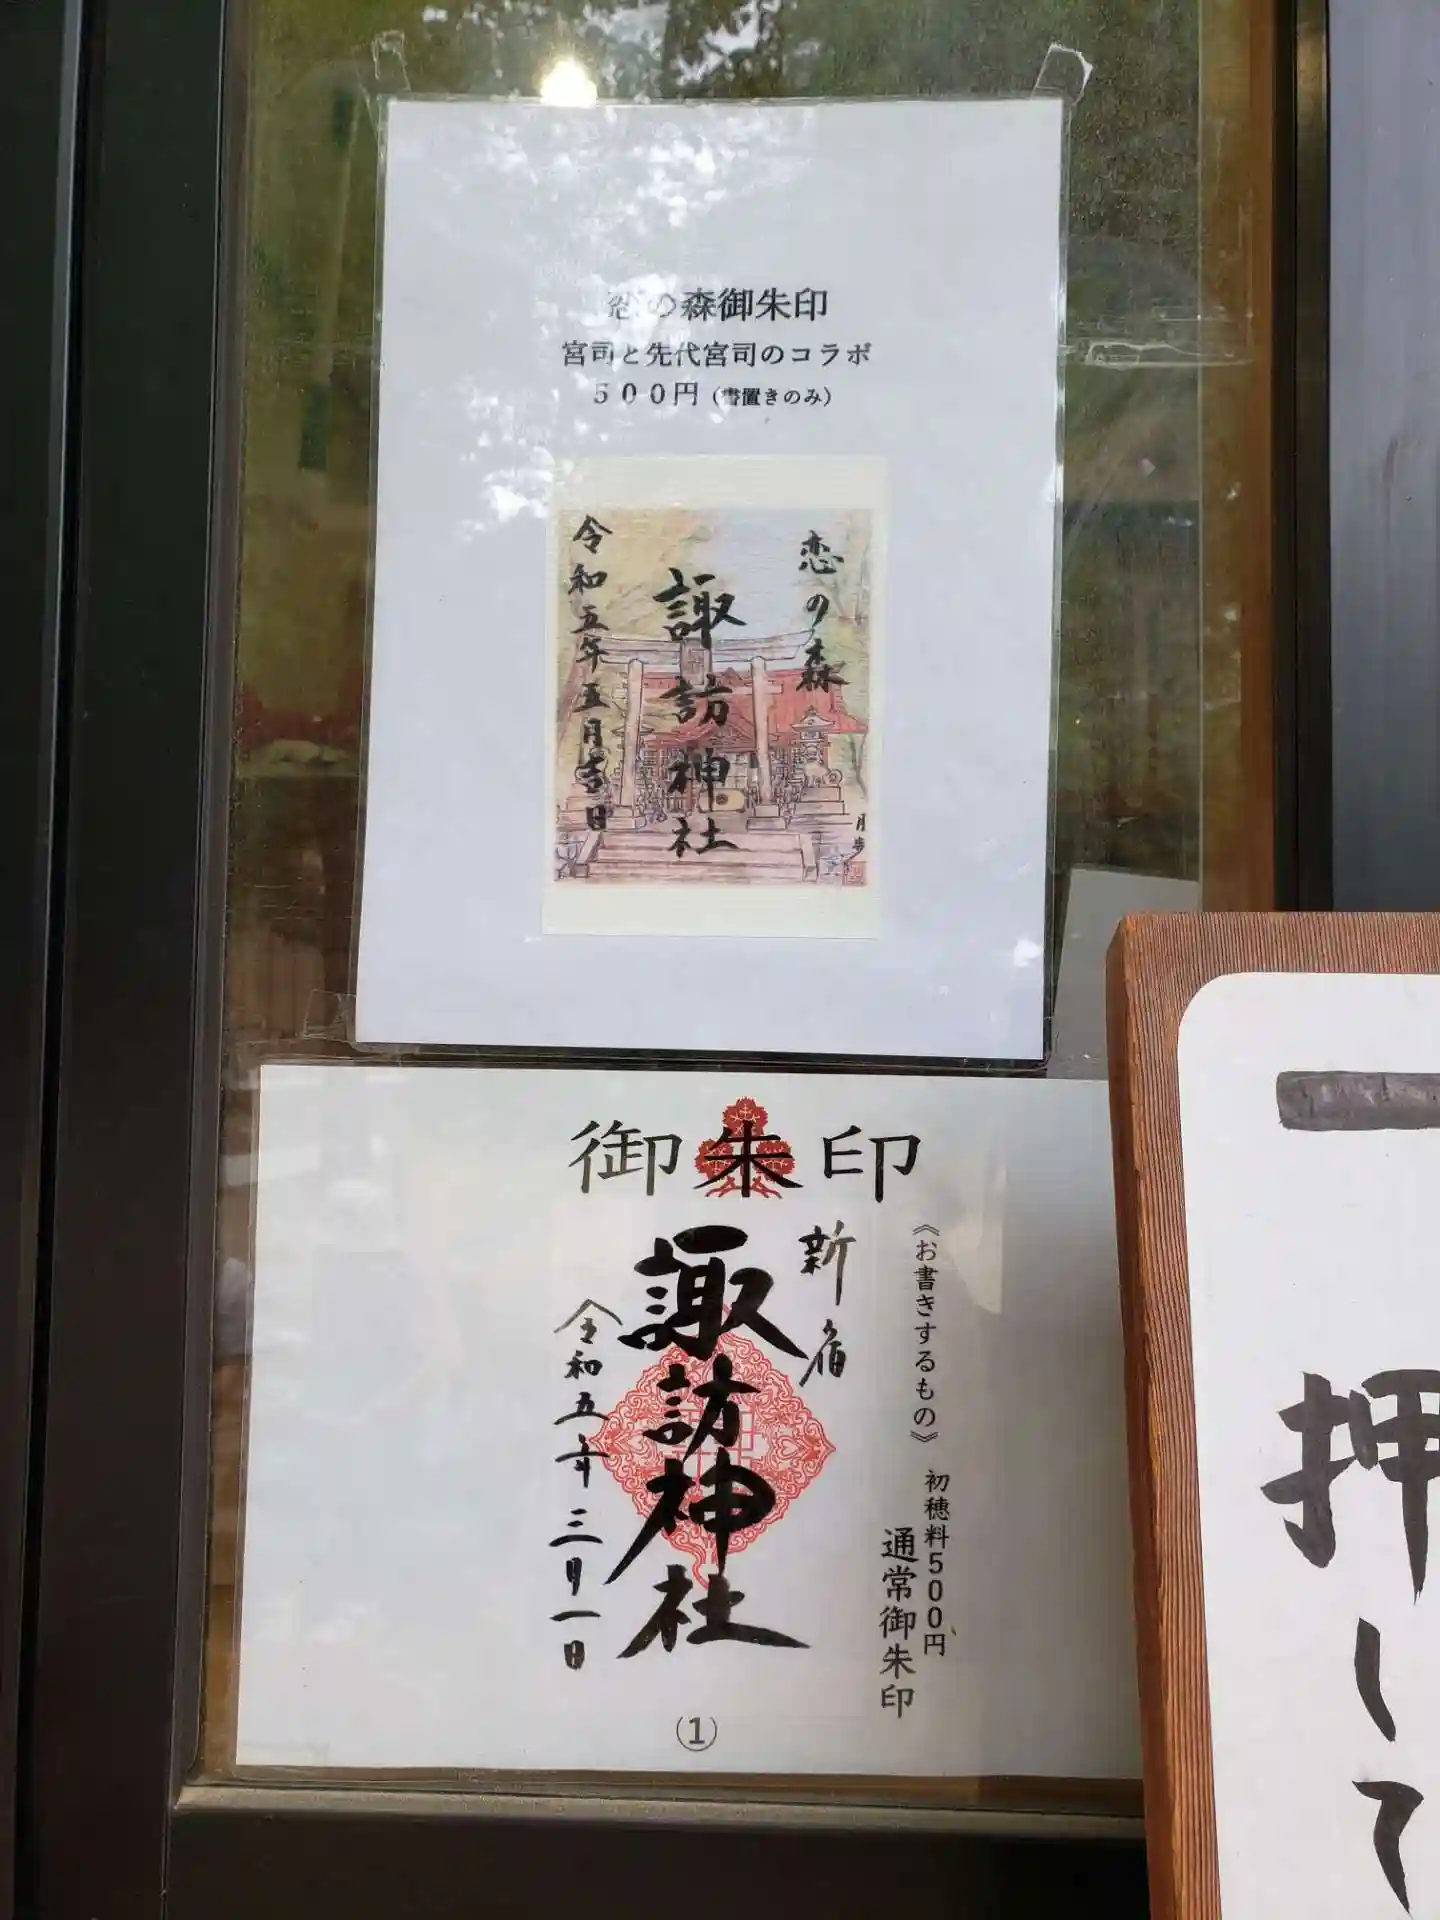 恋の森御朱印
宮司と先代宮司のコラボ
500円（書置きのみ）
恋の森
諏訪神社
令和五年五月吉日
月歩
御朱印
《お書きするもの》 初穂料500円
通常御朱印
新宿
諏訪神社
令和五年三月一日
①
押して